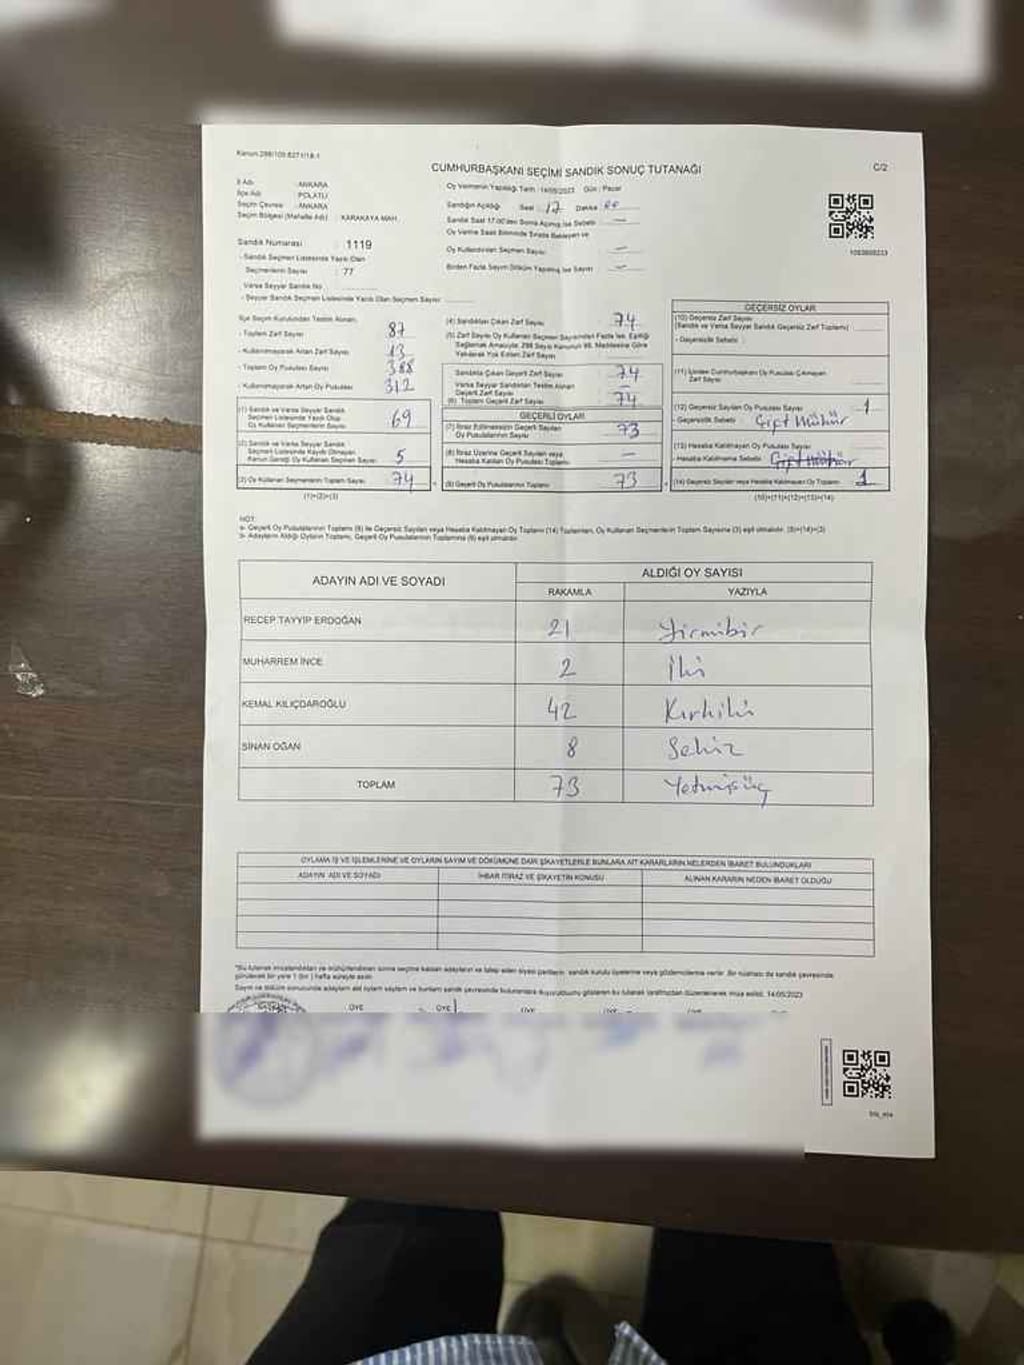 Kanun:298/105.6271/18-1
CUMHURBAŞKANI SEÇİMİ SANDIK SONUÇ TUTANAĞI
C/2
İl Adı : ANKARA
İlçe Adı : POLATLI
Seçim Çevresi : ANKARA
Seçim Bölgesi (Mahalle Adı) : KARAKAYA MAH.
Sandık Numarası : 1119
- Sandık Seçmen Listesinde Yazılı Olan
Seçmenlerin Sayısı : 77
Varsa Seyyar Sandık No
- Seyyar Sandık Seçmen Listesinde Yazılı Olan Seçmen Sayısı
Oy Vermenin Yapıldığı Tarih : 14/05/2023 Gün : Pazar
Sandığın Açıldığı Saat : 17 Dakika
Sandık Saat 17.00'den Sonra Açılmış İse Sebebi : —
Oy Verme Saati Bitiminde Sırada Bekleyen ve
Oy Kullandırılan Seçmen Sayısı : —
Birden Fazla Sayım Döküm Yapılmış İse Sayısı : —
İlçe Seçim Kurulundan Teslim Alınan;
- Toplam Zarf Sayısı 87
- Kullanılmayarak Artan Zarf Sayısı 13
- Toplam Oy Pusulası Sayısı 388
- Kullanılmayarak Artan Oy Pusulası 312
(1) Sandık ve Varsa Seyyar Sandık
Seçmen Listesinde Yazılı Olup
Oy Kullanan Seçmenlerin Sayısı 69
(2) Sandık ve Varsa Seyyar Sandık
Seçmen Listesinde Kayıtlı Olmayan
Kanun Gereği Oy Kullanan Seçmen Sayısı 5
(3) Oy Kullanan Seçmenlerin Toplam Sayısı 74
(1)+(2)=(3)
(4) Sandıktan Çıkan Zarf Sayısı 74
(5) Zarf Sayısı Oy Kullanan Seçmen Sayısından Fazla İse, Eşitliği
Sağlamak Amacıyla; 298 Sayılı Kanunun 98. Maddesine Göre
Yakılarak Yok Edilen Zarf Sayısı
Sandıkta Çıkan Geçerli Zarf Sayısı 74
Varsa Seyyar Sandıktan Teslim Alınan
Geçerli Zarf Sayısı —
(6) Toplam Geçerli Zarf Sayısı 74
GEÇERLİ OYLAR
(7) İtiraz Edilmeksizin Geçerli Sayılan
Oy Pusulalarının Sayısı 73
(8) İtiraz Üzerine Geçerli Sayılan veya
Hesaba Katılan Oy Pusulası Toplamı —
(9) Geçerli Oy Pusulalarının Toplamı 73
GEÇERSİZ OYLAR
(10) Geçersiz Zarf Sayısı
(Sandık ve Varsa Seyyar Sandık Geçersiz Zarf Toplamı)
- Geçersizlik Sebebi :
(11) İçinden Cumhurbaşkanı Oy Pusulası Çıkmayan
Zarf Sayısı
(12) Geçersiz Sayılan Oy Pusulası Sayısı 1
- Geçersizlik Sebebi : Çift Mühür
(13) Hesaba Katılmayan Oy Pusulası Sayısı
- Hesaba Katılmama Sebebi : Çift Mühür
(14) Geçersiz Sayılan veya Hesaba Katılmayan Oy Toplamı 1
(10)+(11)+(12)+(13)=(14)
NOT:
a- Geçerli Oy Pusulalarının Toplamı (9) ile Geçersiz Sayılan veya Hesaba Katılmayan Oy Toplamı (14) Toplamları, Oy Kullanan Seçmenlerin Toplam Sayısına (3) eşit olmalıdır. (9)+(14)=(3)
b- Adayların Aldığı Oyların Toplamı, Geçerli Oy Pusulalarının Toplamına (9) eşit olmalıdır.
ADAYIN ADI VE SOYADI ALDIĞI OY SAYISI
RAKAMLA YAZIYLA
RECEP TAYYİP ERDOĞAN 21 Yirmibir
MUHARREM İNCE 2 İki
KEMAL KILIÇDAROĞLU 42 Kırkiki
SİNAN OĞAN 8 Sekiz
TOPLAM 73 Yetmişüç
OYLAMA İŞ VE İŞLEMLERİNE VE OYLARIN SAYIM VE DÖKÜMÜNE DAİR ŞİKAYETLERLE BUNLARA AİT KARARLARIN NELERDEN İBARET BULUNDUKLARI
ADAYIN ADI VE SOYADI İHBAR İTİRAZ VE ŞİKAYETİN KONUSU ALINAN KARARIN NEDEN İBARET OLDUĞU
ÜYE ÜYE ÜYE ÜYE ÜYE